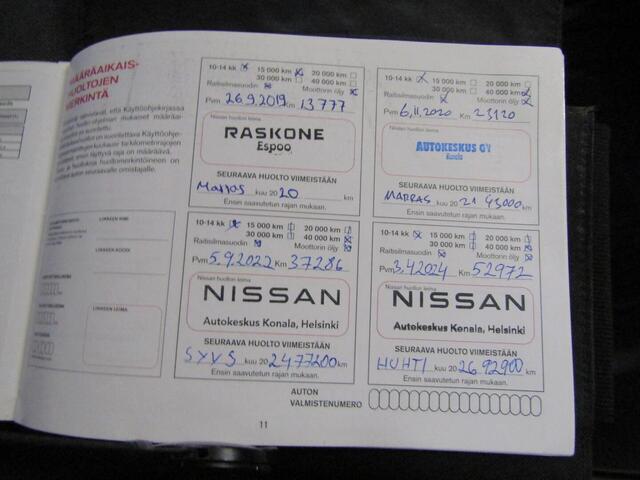 MÄÄRÄAIKAIS-
HUOLTOJEN
MERKINTÄ
10-14 kk 15 000 km 20 000 km
30 000 km 40 000 km
Raitisilmasuodin Moottorin öljy
Pvm 26.9.2019 Km 13777
Nissan huollon leima
RASKONE
Espoo
SEURAAVA HUOLTO VIIMEISTÄÄN
Marras kuu 20 20 km
Ensin saavutetun rajan mukaan.
10-14 kk 15 000 km 20 000 km
30 000 km 40 000 km
Raitisilmasuodin Moottorin öljy
Pvm 6.11.2020 Km 23120
Nissan huollon leima
AUTOKESKUS OY
Konala
SEURAAVA HUOLTO VIIMEISTÄÄN
MARRAS kuu 20 21 43000 km
Ensin saavutetun rajan mukaan.
LIIKKEEN NIMI
LIIKKEEN KOODI
LIIKKEEN LEIMA
10-14 kk 15 000 km 20 000 km
30 000 km 40 000 km
Raitisilmasuodin Moottorin öljy
Pvm 5.9.2022 Km 37286
Nissan huollon leima
NISSAN
Autokeskus Konala, Helsinki
SEURAAVA HUOLTO VIIMEISTÄÄN
SYYS kuu 20 24 77200 km
Ensin saavutetun rajan mukaan.
10-14 kk 15 000 km 20 000 km
30 000 km 40 000 km
Raitisilmasuodin Moottorin öljy
Pvm 3.4.2024 Km 52972
Nissan huollon leima
NISSAN
Autokeskus Konala, Helsinki
SEURAAVA HUOLTO VIIMEISTÄÄN
HUHTI kuu 20 26 92900 km
Ensin saavutetun rajan mukaan.
AUTON
VALMISTENUMERO
11